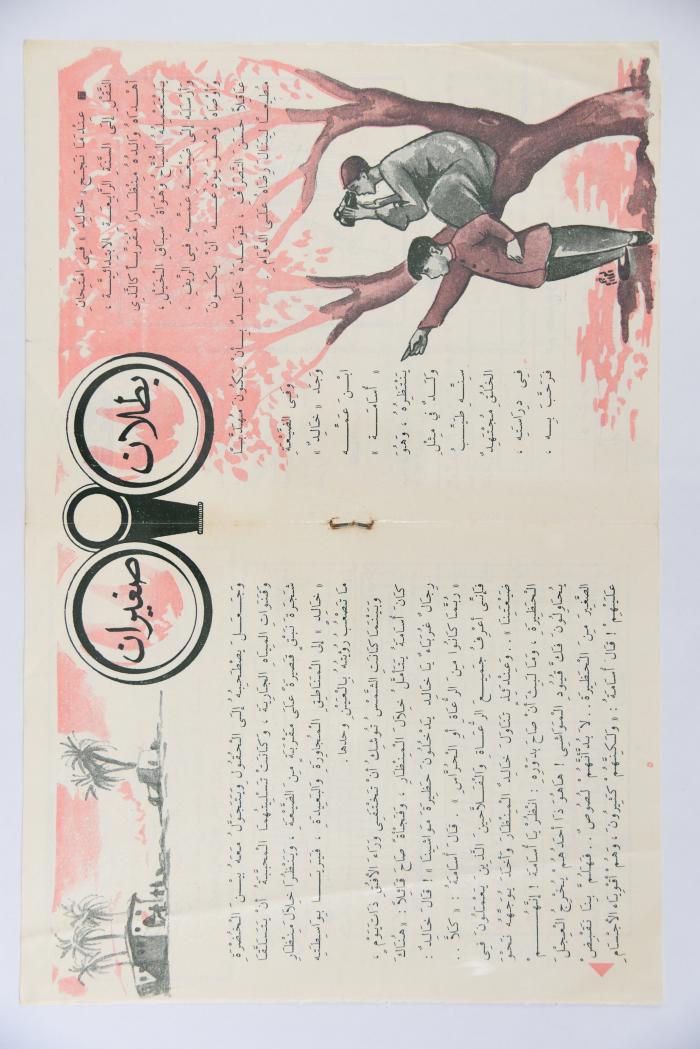 بطلان صغيران
■ عندما نجح « خالد » في امتحان
النقل إلى السنة الرابعة الابتدائية ،
أهداه والده منظارا مقربا كالذي
يستعمله السياح وهواة سباق الخيل ،
وأرسله إلى ضيعة عمه في الريف ،
وأوصاه وهو يودعه أن يكون
عاقلا حسن التصرف ، فوعده خالد بأن يكون مهذبا
مطيعا لينال رضاه على الدوام .
وفي الضيعة
وجد « خالد »
ابن عمه
« أسامة »
ينتظره ، وهو
ولد في مثل
سنه طيب
الخلق مجتهد
في دراسته ،
فرحب به ،
وجعل يصطحبه إلى الحقول ويتجول معه بين الخضرة
وقنوات المياه الجارية ، وكانت تسليتهما المحببة أن يتسلقا
شجرة نبق قصيرة على مقربة من الضيعة ، وينظرا خلال منظار
« خالد » إلى المناطق المجاورة والبعيدة ، فيريا بواسطته
ما تصعب رؤيته بالعين وحدها .
وبينما كانت الشمس توشك أن تختفي وراء الأفق ذات يوم ،
كان أسامة يتأمل خلال المنظار ، وفجأة صاح قائلا : « هناك
رجال غرباء يا خالد يدخلون حظيرة مواشينا » ! قال خالد :
« ربما كانوا من الرعاة أو الحراس » . قال أسامة : « كلا ..
فإني أعرف جميع الرعاة والفلاحين الذين يعملون في
ضيعتنا » .. وعندئذ تناول خالد المنظار وأخذ يوجهه نحو
الحظيرة ، وما لبث أن صاح بدوره : انظر يا أسامة ! إنهم
يحاولون فك قيود المواشي ! ها هو ذا أحدهم يخرج العجل
الصغير من الحظيرة .. لا بد أنهم لصوص .. فهلم بنا نقبض
عليهم ! قال أسامة : « ولكنهم كثيرون ، وهم أقوياء الأجسام